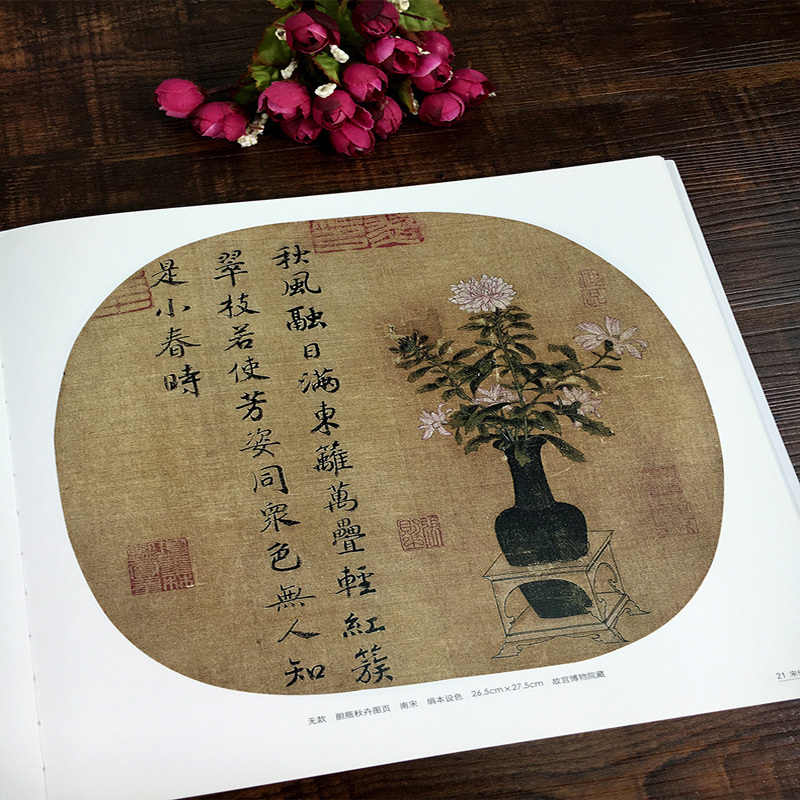 秋風融日满東籬萬疊輕紅簇
翠枝若使芳姿同衆色無人知
是小春時
无款 胆瓶秋卉图页 南宋 绢本设色 26.5cm×27.5cm 故宫博物院藏
21 宋